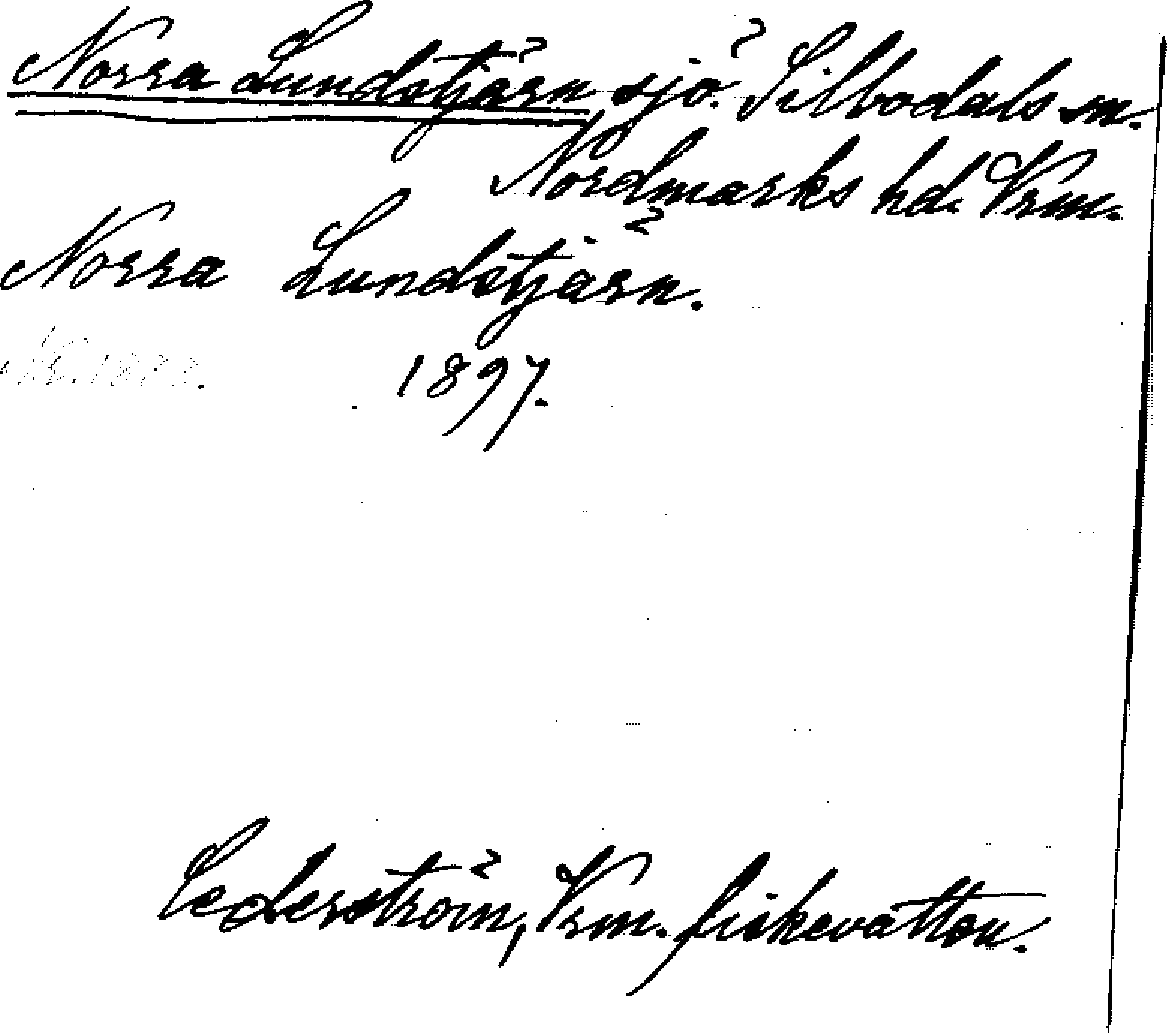 Norra Lundstjärn, sjö. Silbodals sn.
Nordmarks hd. Vrm.
Norra Lundstjärn.
1897.
Cederström, Vrm. fiskevatten.